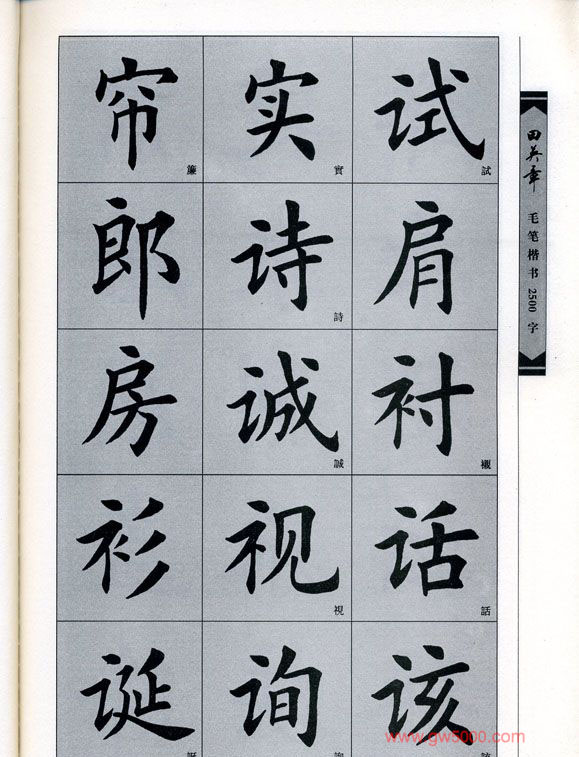 帘 簾 实 實 试 試
郎 诗 詩 肩
房 诚 誠 衬 襯
衫 视 視 话 話
诞 询 该
田英章
毛笔楷书2500字
www.gw5000.com